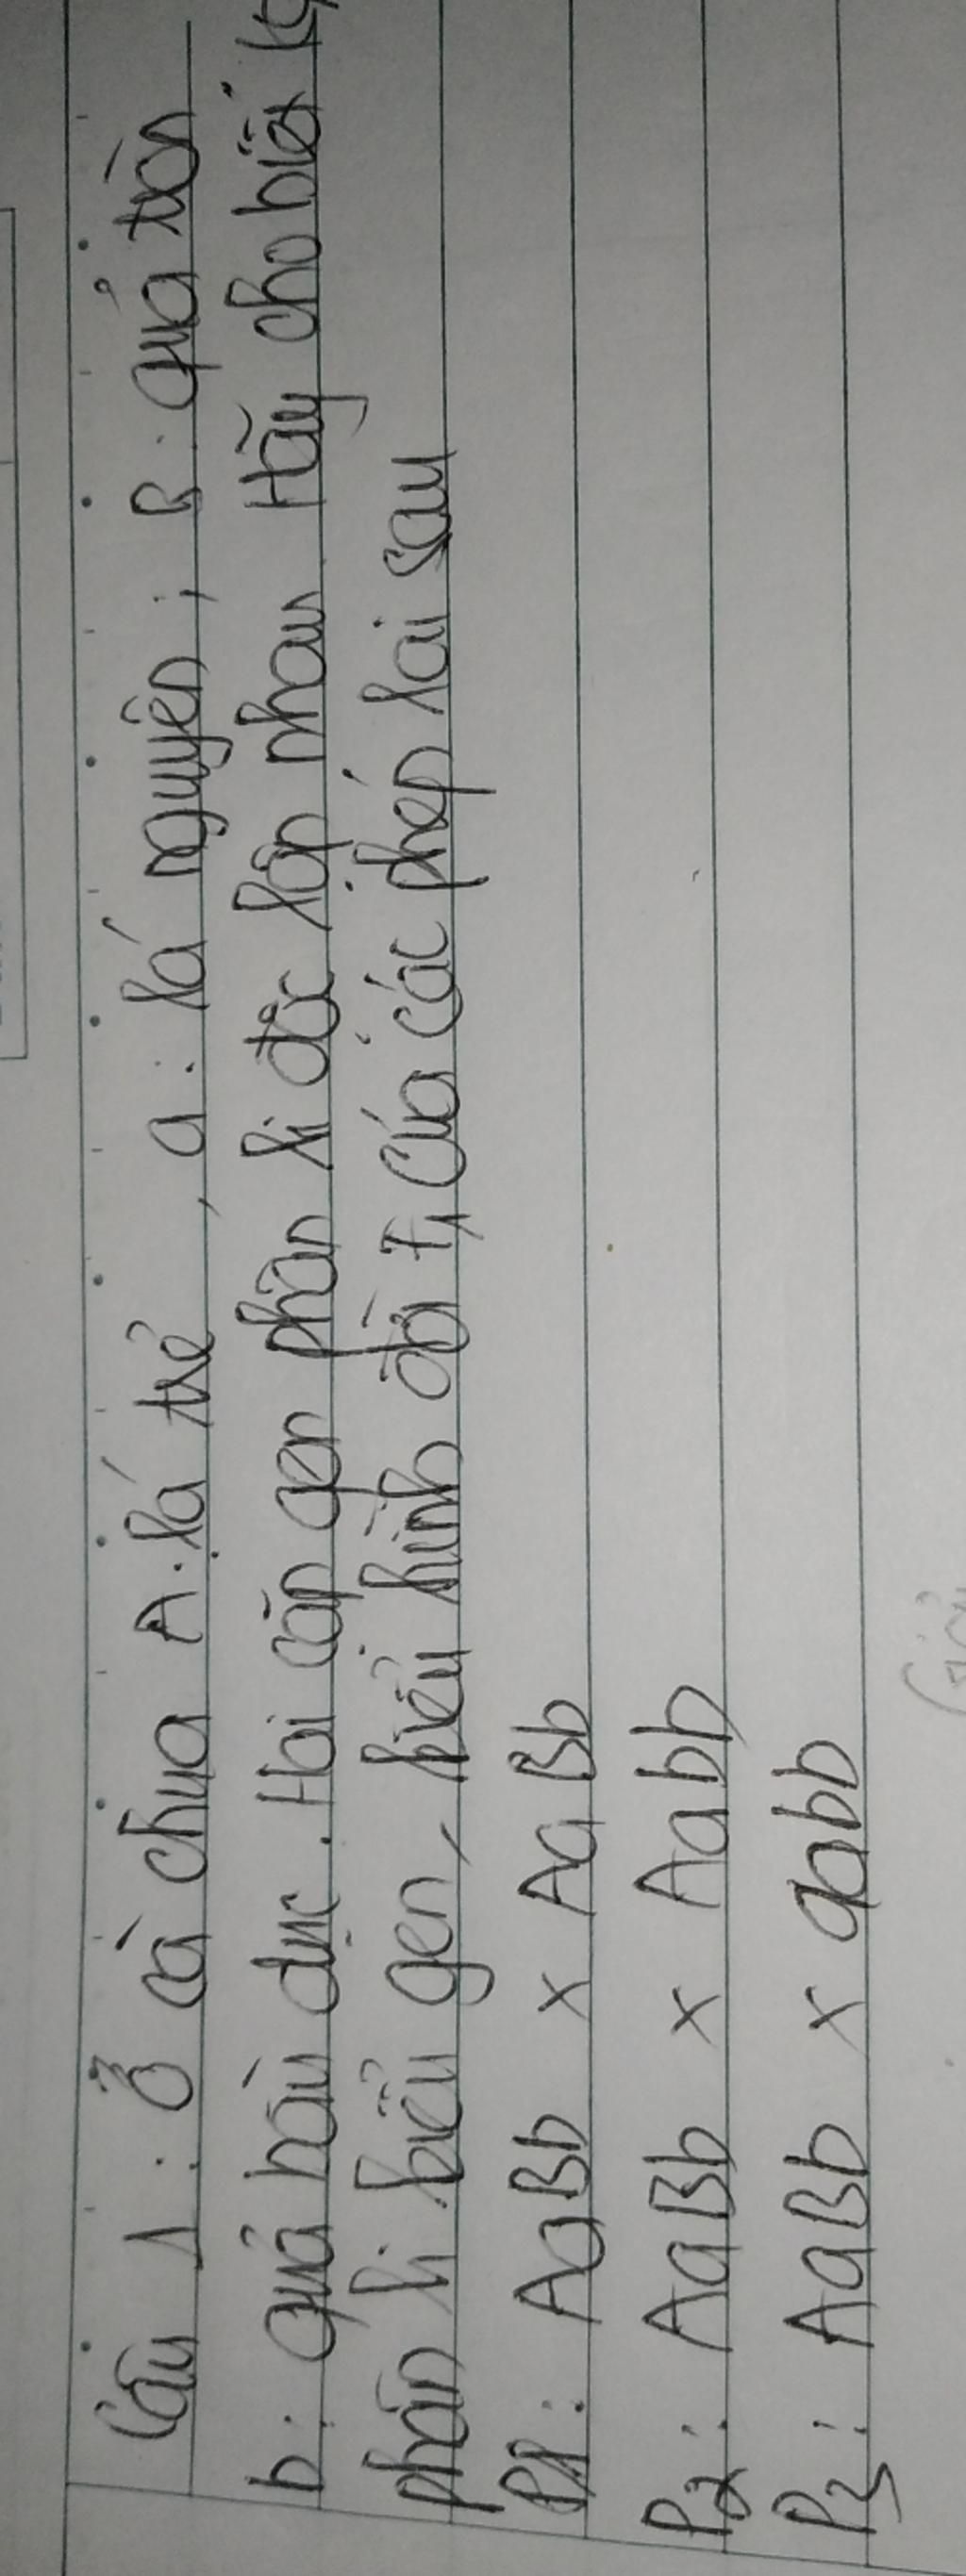 Câu 1 : Ở cà chua A. lá chẻ, a : lá nguyên ; B : quả tròn
b : quả bầu dục. Hai cặp gen phân li độc lập nhau. Hãy cho biết
phân li kiểu gen, kiểu hình đời F1 của các phép lai sau
P1 : AaBb x AaBb
P2 : AaBb x Aabb
P3 : AaBb x aabb